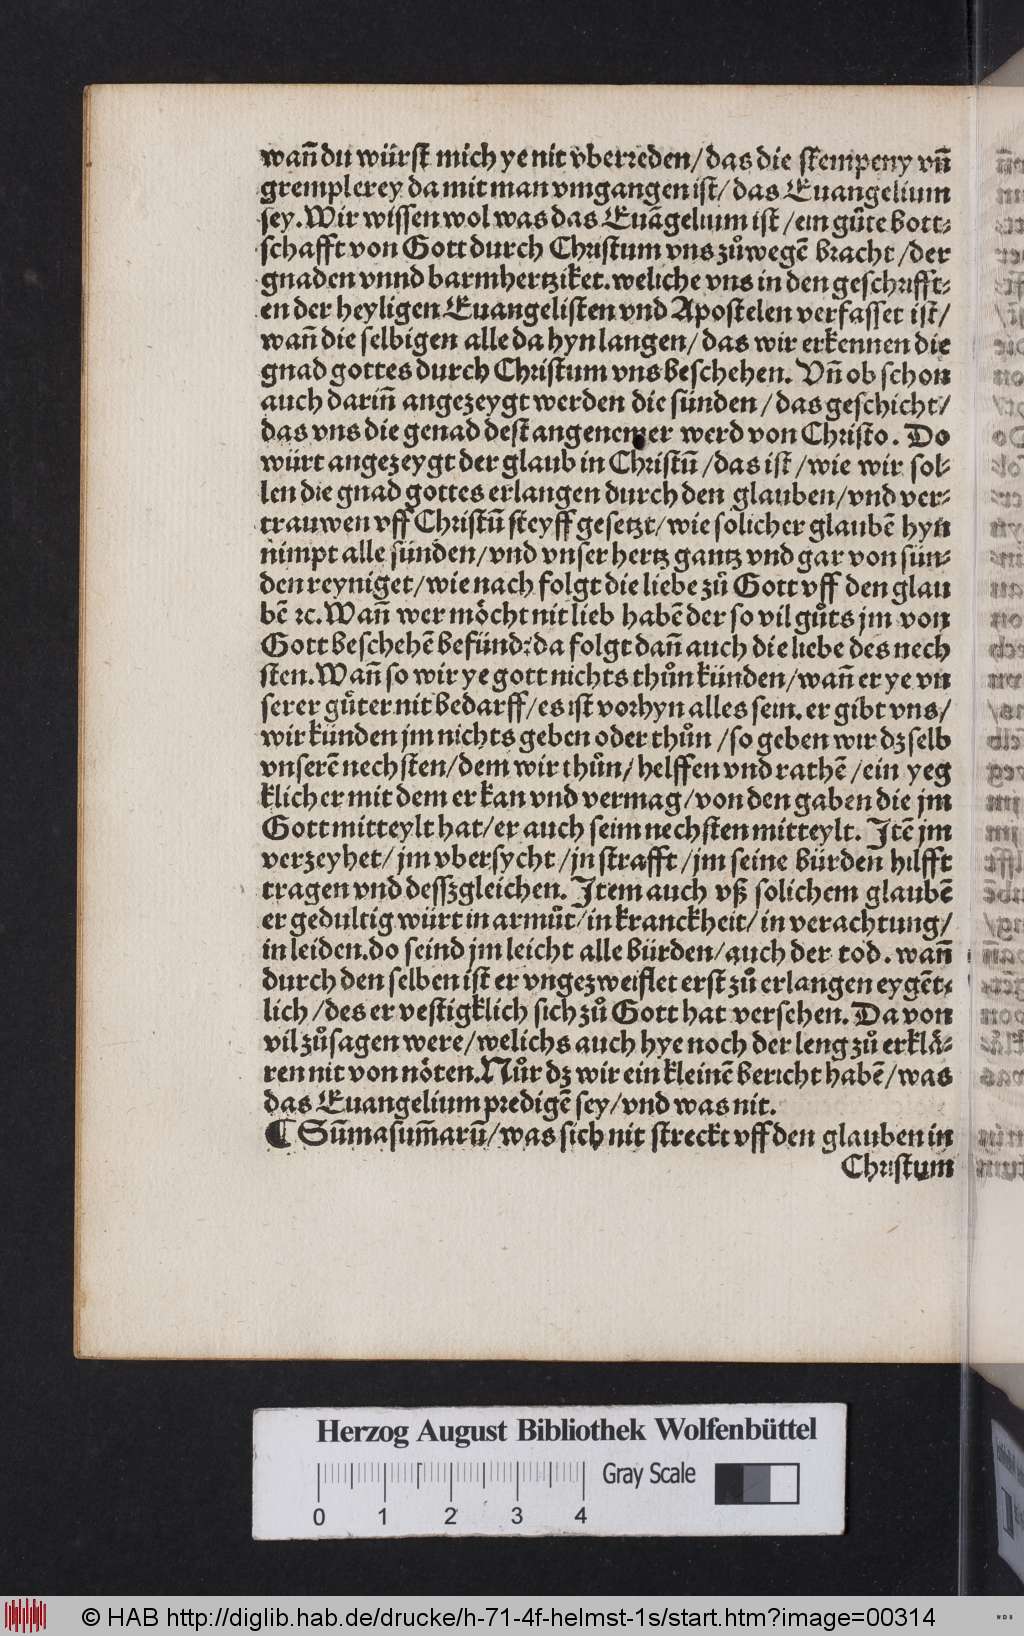 wañ du würst mich ye nit vberreden/das die stempeny vñ
gremplerey da mit man vmgangen ist/das Euangelium
sey. Wir wissen wol was das Euãgelium ist/ein gůte bott-
schafft von Gott durch Christum vns zůwegẽ bracht/der
gnaden vnnd barmhertziket. weliche vns in den geschrifft-
en der heyligen Euangelisten vnd Apostelen verfasset ist/
wañ die selbigen alle da hyn langen/das wir erkennen die
gnad gottes durch Christum vns beschehen. Vñ ob schon
auch dariñ angezeygt werden die sünden/das geschicht/
das vns die genad dest angenemer werd von Christo. Do
würt angezeygt der glaub in Christũ/das ist/wie wir sol-
len die gnad gottes erlangen durch den glauben/vnd ver-
trauwen vff Christũ steyff gesetzt/wie solicher glaubẽ hyn
nimpt alle sünden/vnd vnser hertz gantz vnd gar von sün-
den reyniget/wie nach folgt die liebe zů Gott vff den glau
bẽ ꝛc. Wañ wer möcht nit lieb habẽ der so vil gůts jm von
Gott beschehẽ befünd: da folgt dañ auch die liebe des nech
sten. Wañ so wir ye gott nichts thůn künden/wañ er ye vn
serer gůter nit bedarff/es ist vorhyn alles sein. er gibt vns/
wir künden jm nichts geben oder thůn/so geben wir dz selb
vnserẽ nechsten/dem wir thůn/helffen vnd rathẽ/ein yeg
klicher mit dem er kan vnd vermag/von den gaben die jm
Gott mitteylt hat/er auch seim nechsten mitteylt. Itẽ jm
verzeyhet/jm vbersycht/jn strafft/jm seine bürden hilfft
tragen vnd dessgleichen. Item auch vß solichem glaubẽ
er gedultig würt in armůt/in kranckheit/in verachtung/
in leiden. do seind jm leicht alle bürden/auch der tod. wañ
durch den selben ist er vngezweiflet erst zů erlangen eygẽt-
lich/des er vestigklich sich zů Gott hat versehen. Da von
vil zůsagen were/welichs auch hye noch der leng zů erklä-
ren nit von nöten. Nůr dz wir ein kleinẽ bericht habẽ/was
das Euangelium predigẽ sey/vnd was nit.
¶ Sũma sum̃arũ/was sich nit streckt vff den glauben in
Christum
Herzog August Bibliothek Wolfenbüttel
Gray Scale
0 1 2 3 4
© HAB http://diglib.hab.de/drucke/h-71-4f-helmst-1s/start.htm?image=00314